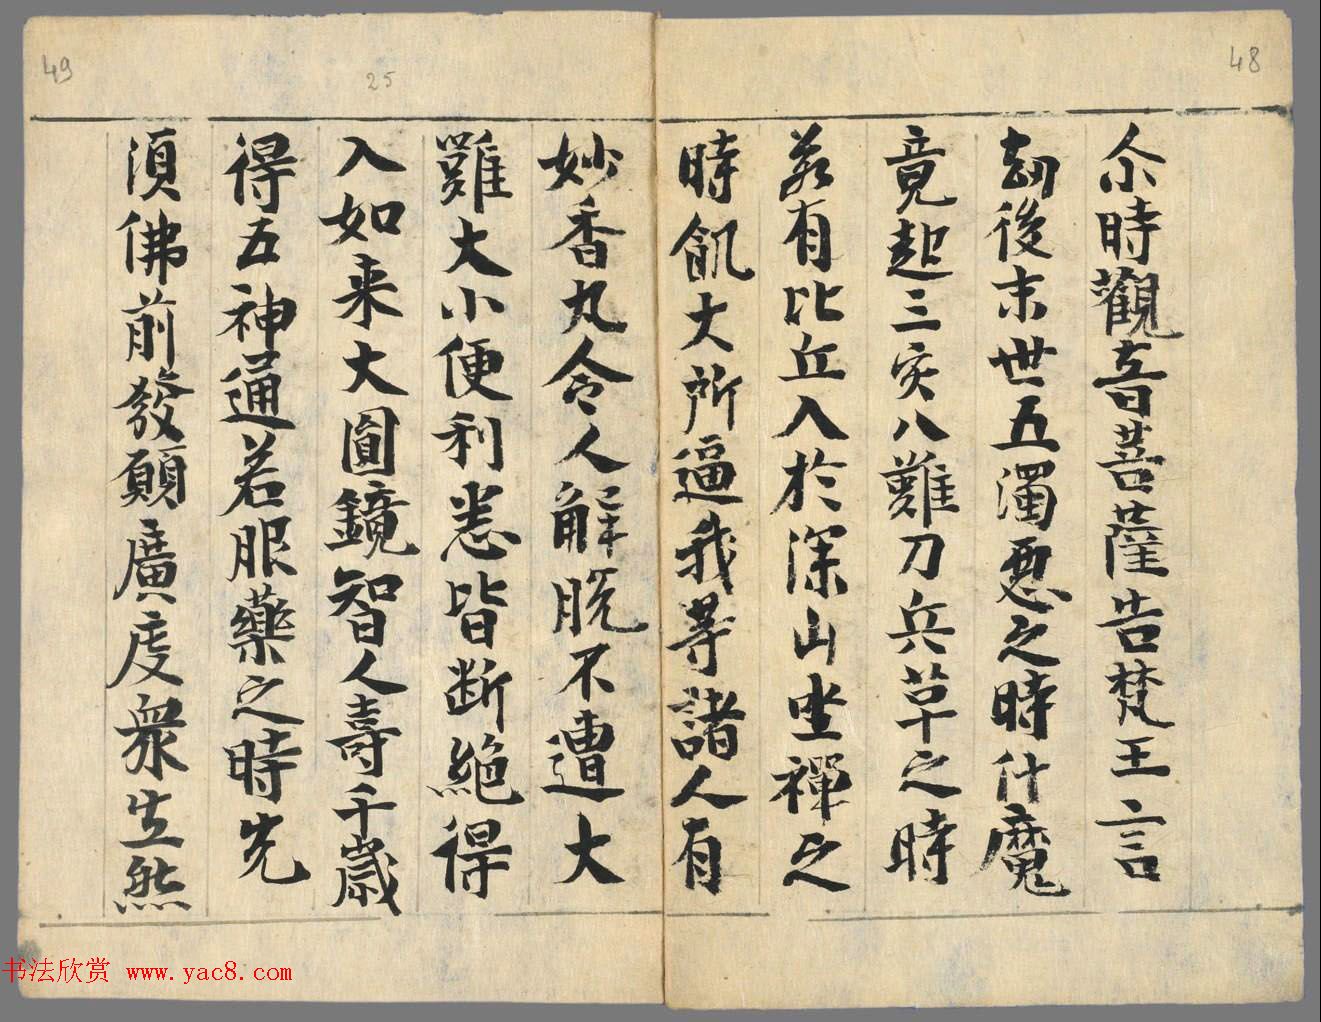 48
尒時觀音菩薩告梵王言
劫後末世五濁惡之時什魔
竟起三灾八難刀兵草之時
若有比丘入於深山坐禪之
時飢大所逼我等諸人有
49
25
妙香丸令人解脫不遭大
難大小便利悉皆断絶得
入如来大圓鏡智人壽千歲
得五神通若服藥之時先
湏佛前發願廣度衆生然
书法欣赏 www.yac8.com